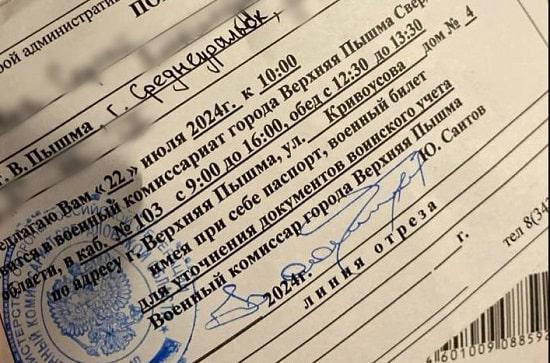 рой администрати
ПО
г. Среднеуральск,
г. В. Пышма,
едлагаю Вам « 22 » июля 2024г. к 10:00
виться в военный комиссариат города Верхняя Пышма Свер
области, в каб. № 103 с 9:00 до 16:00, обед с 12:30 до 13:30
по адресу г. Верхняя Пышма, ул. Кривоусова дом № 4
имея при себе паспорт, военный билет
для уточнения документов воинского учета
Военный комиссар города Верхняя Пышма
Ю. Саитов
2024г. г.
линия отреза
тел 8(34
4601009088592